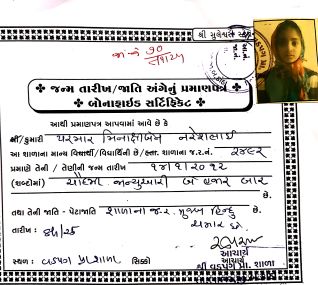 શ્રી મુળેશ્વર
જા.નં. ૭૦
જન્મ તારીખ/જાતિ અંગેનું પ્રમાણપત્ર
બોનાફાઇડ સર્ટિફિકેટ
આથી પ્રમાણપત્ર આપવામાં આવે છે કે
શ્રી/કુમારી પરમાર મિનાક્ષીબેન નરેશભાઈ
આ શાળાના માન્ય વિદ્યાર્થી/વિદ્યાર્થીની છે/હતા. શાળાના જ.ર.નં. ૨૪૯૨
પ્રમાણે તેની / તેણીની જન્મ તારીખ ૧૪/૧/૨૦૧૨
(શબ્દોમાં) ચૌદમી જાન્યુઆરી બે હજાર બાર
છે.
તથા તેની જાતિ - પેટાજાતિ શાળાના જ.ર. મુજબ હિન્દુ
ચમાર છે.
તારીખ :
આચાર્ય
આચાર્ય
સ્થળ : વડપગ પ્રા.શાળા સિક્કો શ્રી વડપગ પ્રા. શાળા